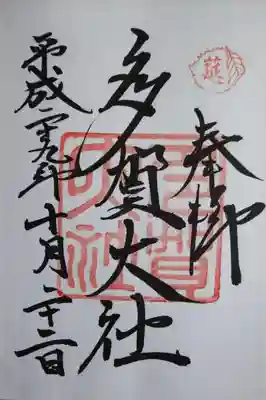 奉拝
多賀大社
平成二十九年十月二十二日
多賀
大社